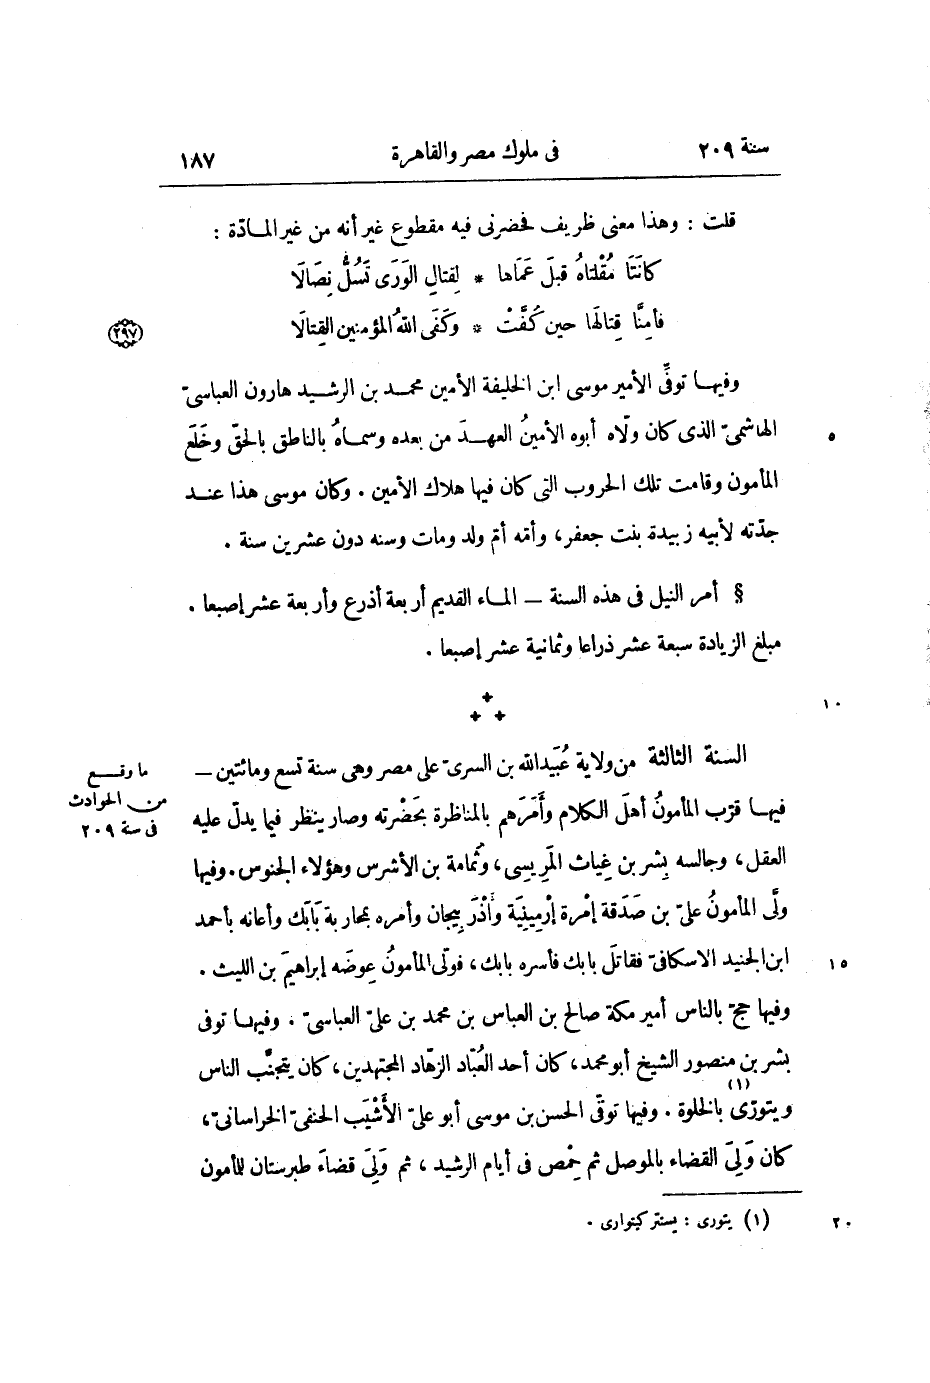 سنة ٢٠٩ فى ملوك مصر والقاهرة ١٨٧
قلت : وهذا معنى ظريف فحضرنى فيه مقطوع غير أنه من غير المادّة :
كانَتَا مُقْلتاهُ قبلَ عَمَاها * لِقتالِ الوَرَى تَسُلُّ نِصَالَا
فأمِنَّا قِتالَها حين كُفَّتْ * وكَفَى اللهُ المؤمنين القِتالَا
٢٩٧
وفيهـا توفِّى الأمير موسى ابن الخليفة الأمين محمـد بن الرشيـد هارون العباسىّ
الهاشمىّ الذى كان ولّاه أبوه الأمينُ العهـدَ من بعده وسمـاهُ بالناطق بالحقّ وخَلَعَ
٥
المأمون وقامت تلك الحروب التى كان فيها هلاك الأمين . وكان موسى هذا عنـد
جدّته لأبيه زبيدة بنت جعفر، وأمّه أمّ ولد ومات وسنه دون عشرين سنة .
§ أمر النيل فى هذه السنة — المـاء القديم أربعة أذرع وأربعة عشر إصبعا .
مبلغ الزيادة سبعة عشر ذراعا وثمانية عشر إصبعا .
١٠
السنة الثالثة من ولاية عُبَيدالله بن السرىّ على مصر وهى سنة تسع ومائتين —
ما وقـع
من الحوادث
فى سنة ٢٠٩
فيهـا قرّب المأمونُ أهلَ الكلام وأَمَرَهم بالمناظرة بحَضْرته وصار ينظر فيما يدلّ عليه
العقل، وجالسه بِشر بن غِياث المَرِيسى، وثُمامة بن الأشرس وهؤلاء الجنوس. وفيها
ولَّى المأمونُ علىّ بن صَدَقة إمْرة إرْمِينِيَة وأَذْرَبيجان وأمره بمحاربة بَابَك وأعانه بأحمد
ابن الجنيد الاسكافىّ فقاتلَ بابك فأسره بابك، فولّى المأمونُ عِوضَه إبراهيمَ بن الليث .
١٥
وفيها حجّ بالناس أمير مكة صالح بن العباس بن محمد بن علىّ العباسىّ . وفيهـا توفى
بشر بن منصور الشيخ أبو محمد، كان أحد العُبّاد الزهّاد المجتهدين، كان يتجنَّب الناس
ويتورّى (١) بالخلوة . وفيها توفّى الحسن بن موسى أبو علىّ الأَشْيَب الحنفىّ الخراسانىّ،
كان وَلِىَ القضاء بالموصل ثم حِمْص فى أيام الرشيد ، ثم وَلِىَ قضاءَ طبرستان للأمون
(١) يتورى : يستتر كيتوارى .
٢٠